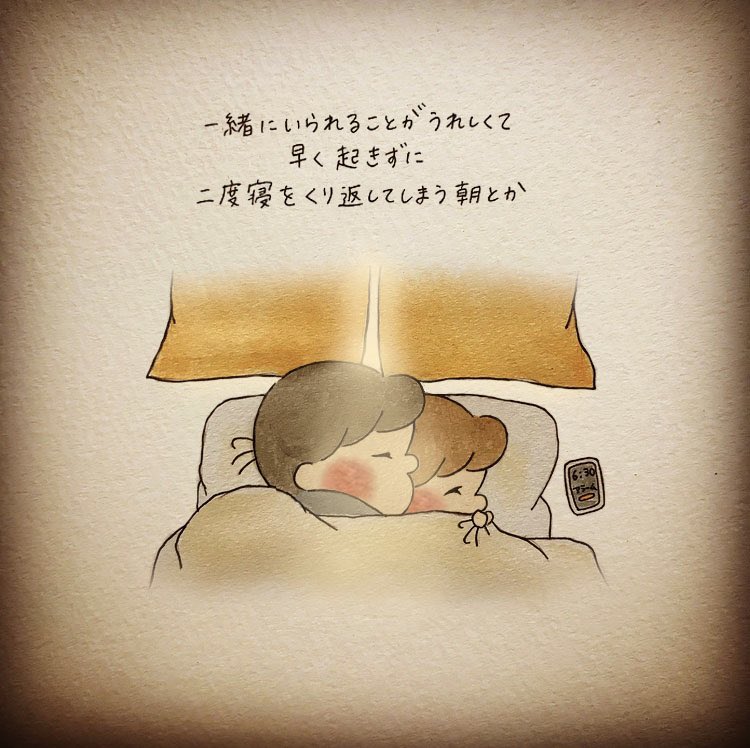 一緒にいられることがうれしくて
早く起きずに
二度寝をくり返してしまう朝とか
6:30
アラーム